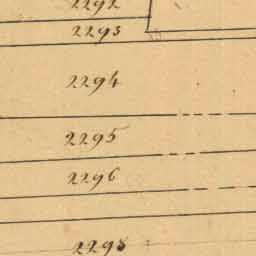 2292
2293
2294
2295
2296
2298